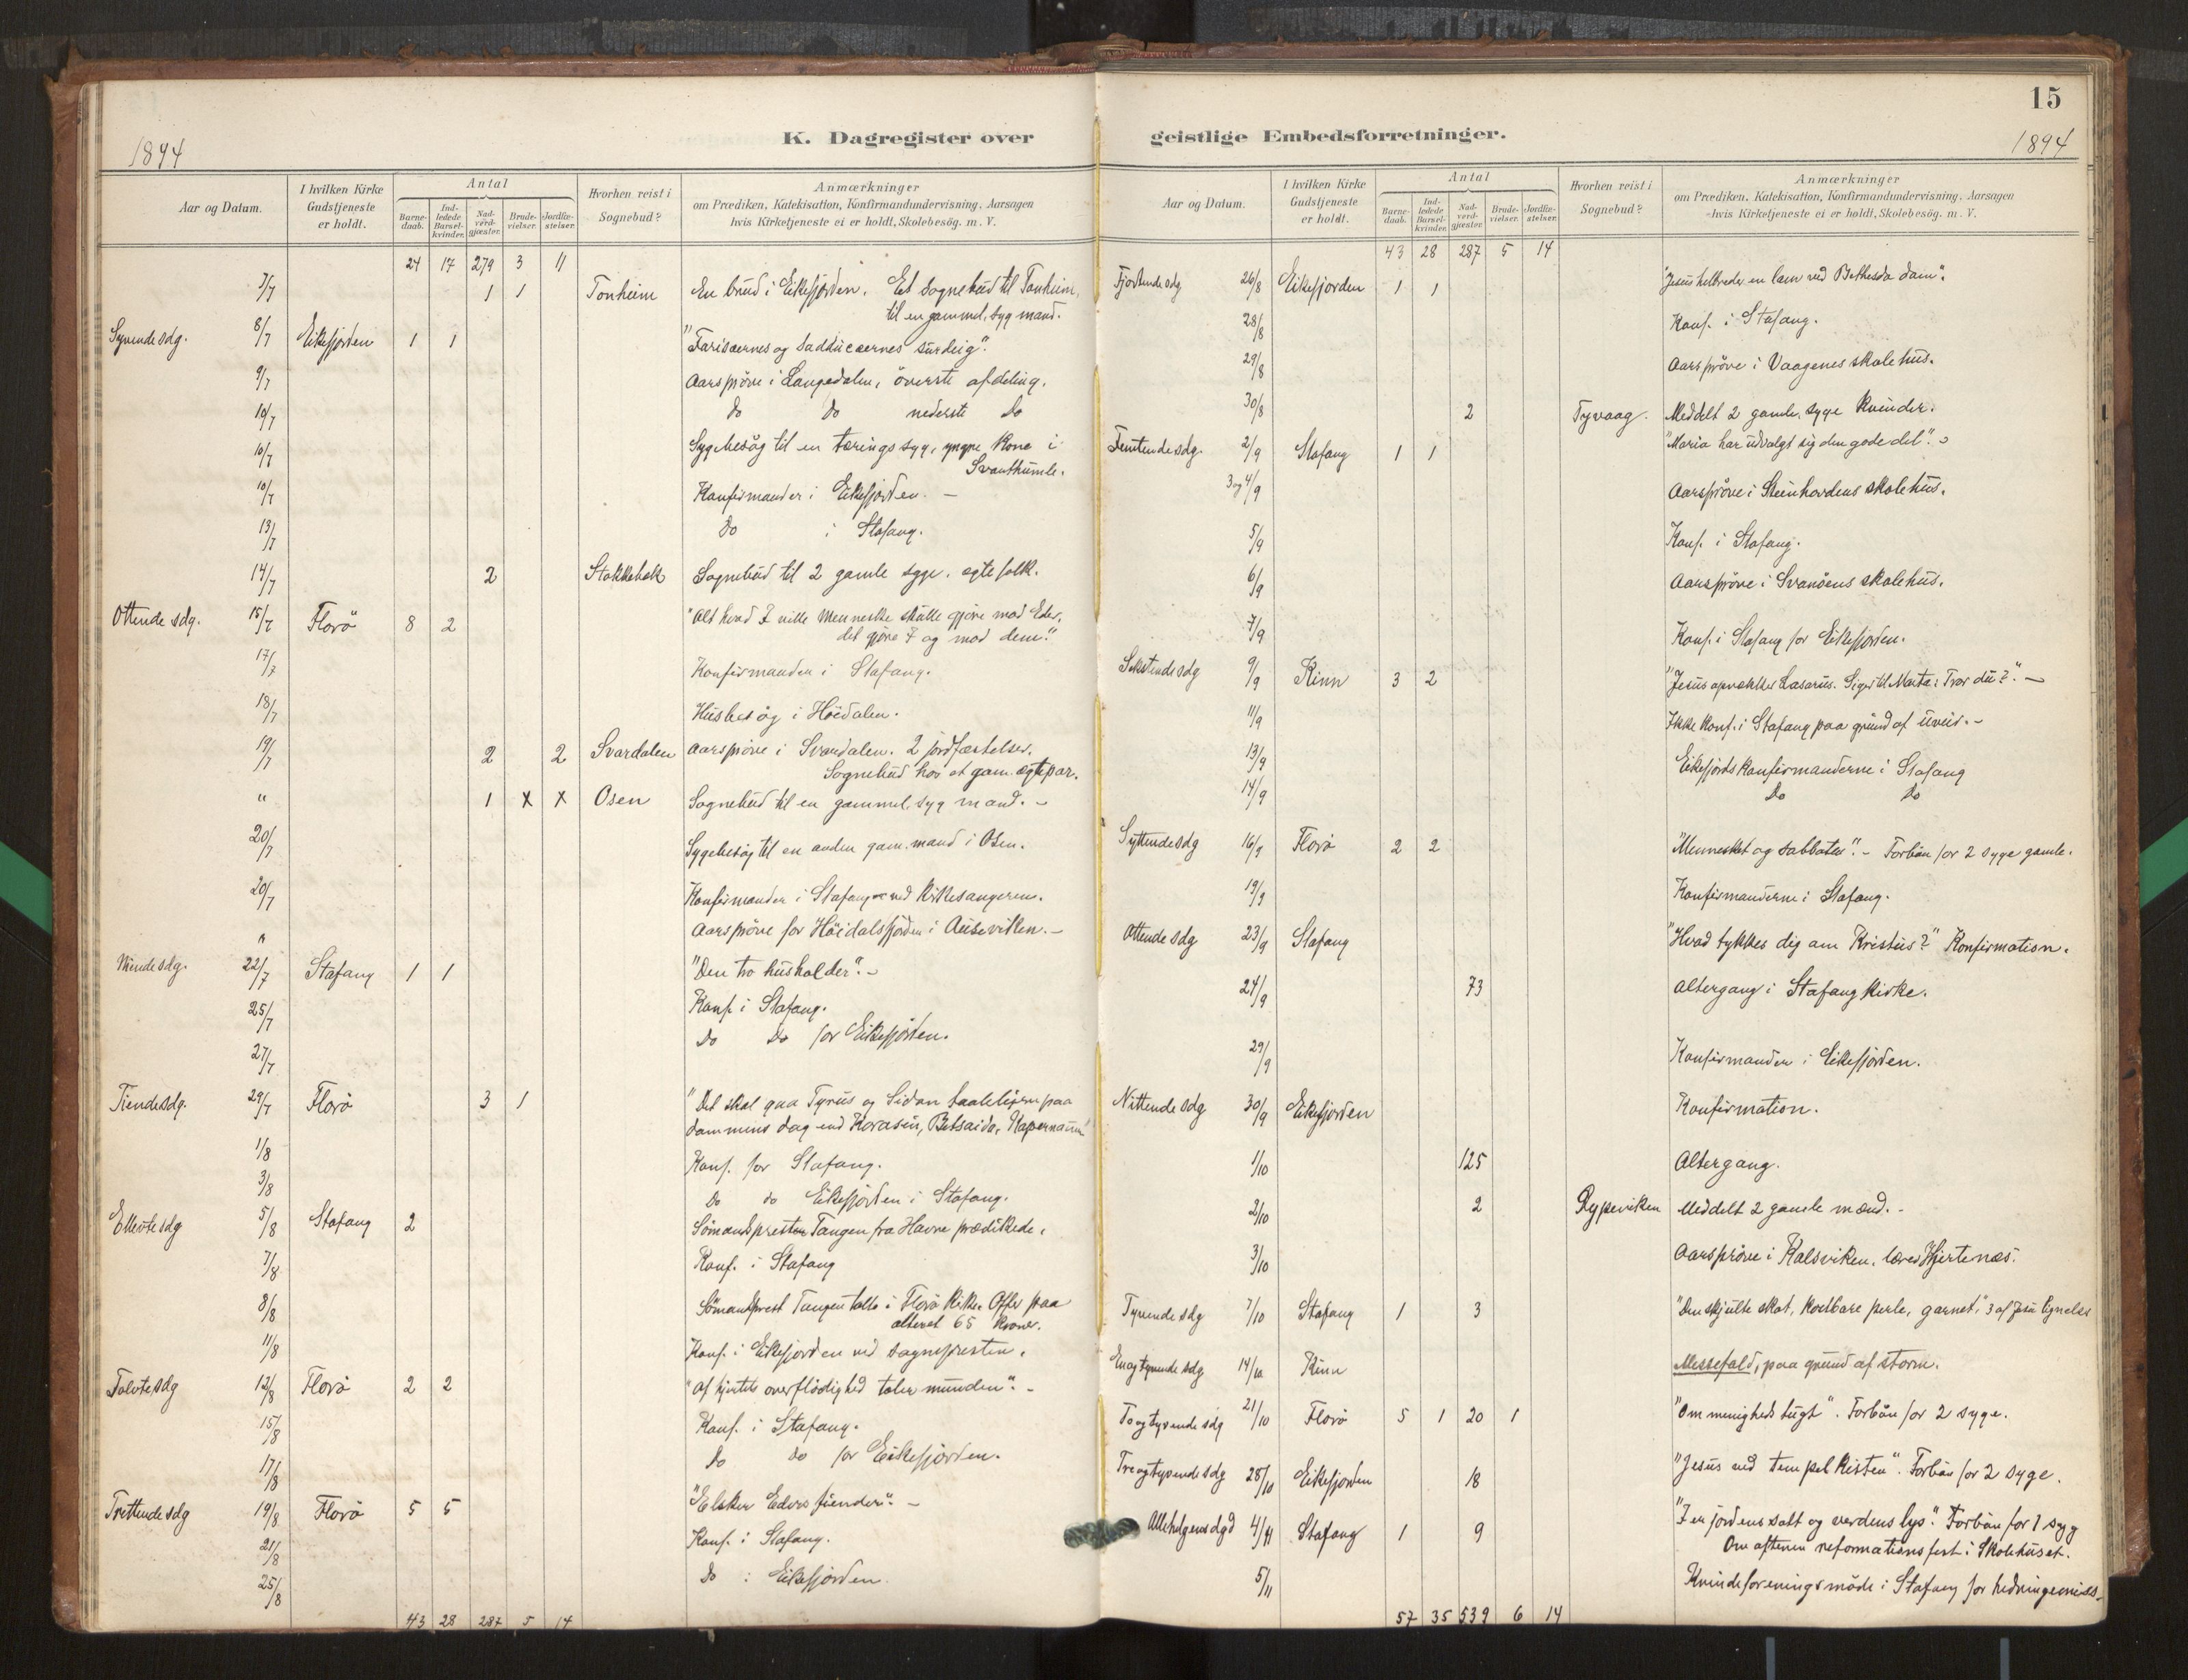 15
1894
K. Dagregister over
geistlige Embedsforretninger.
1894
Aar og Datum.
I hvilken Kirke Gudstjeneste er holdt.
Antal
Barne-daab.
Ind-ledede Barsel-kvinder.
Nad-verd-gjæster.
Brude-vielser.
Jordfæ-stelser.
Hvorhen reist i Sognebud?
Anmærkninger
om Prædiken, Katekisation, Konfirmandundervisning. Aarsagen
hvis Kirketjeneste ei er holdt, Skolebesög. m. V.
24 17 279 3 11
7/7 1 1 Tonheim En brud i Eikefjorden. Et sognebud til Tonheim,
til en gammel, syg mand.
Syvende sdg. 8/7 Eikefjorden 1 1 "Farisæernes og Sadducæernes surdeig".
9/7 Aarspröve i Langedalen, överste afdeling.
10/7 do do nederste do
10/7 Sygebesög til en tæringssyg, yngre kone i
Svanthumle.
10/7 Konfirmander i Eikefjorden. -
13/7 do i Stafang.
14/7 2 Stokkebæk Sognebud til 2 gamle syge, egtefolk.
Ottende sdg. 15/7 Florö 8 2 "Alt hvad I ville Menneske skulle gjöre mod Eder,
det gjöre I og mod dem."
17/7 Konfirmander i Stafang.
18/7 Husbesög i Höidalen.
19/7 2 2 Svardalen Aarspröve i Svardalen. 2 jordfæstelser.
Sognebud hos et gam. egtepar.
" 1 x x Osen Sognebud til en gammel, syg mand. -
20/7 Sygebesög til en anden gam. mand i Osen.
20/7 Konfirmander i Stafang ved kirkesangeren.
" Aarspröve for Höidalsfjorden i Ausevitlen. -
Niende sdg. 22/7 Stafang 1 1 "Den tro husholder". -
25/7 Konf. i Stafang.
27/7 do do for Eikefjorden.
Tiende sdg. 29/7 Florö 3 1 "Det skal gaa Tyrus og Sidon taaleligere paa
dommens dag end Korasin, Betsaida, Kapernaum"
1/8 Konf. for Stafang.
3/8 do do Eikefjorden i Stafang.
Ellevte sdg 5/8 Stafang 2 Sömandspresten Tangen fra Havre prædikede.
7/8 Konf. i Stafang
8/8 Sömandsprest Tangen talte i Florö kirke. Offer paa
alteret 65 kroner.
11/8 Konf. i Eikefjorden ved sognepresten.
Tolvte sdg 12/8 Florö 2 2 "Af hjertets overflödighed taler munden". -
15/8 Konf. i Stafang.
17/8 do do for Eikefjorden.
Trettende sdg 19/8 Florö 5 5 "Elsker Eders fiender". -
21/8 Konf. i Stafang.
25/8 do i Eikefjorden.
43 28 287 5 14
Aar og Datum.
I hvilken Kirke Gudstjeneste er holdt.
Antal
Barne-daab.
Ind-ledede Barsel-kvinder.
Nad-verd-gjæster.
Brude-vielser.
Jordfæ-stelser.
Hvorhen reist i Sognebud?
Anmærkninger
om Prædiken, Katekisation, Konfirmandundervisning, Aarsagen
hvis Kirketjeneste ei er holdt, Skolebesög. m. V.
43 28 287 5 14
Fjortende sdg 26/8 Eikefjorden 1 1 "Jesus helbreder en lam ved Bethesda dam".
28/8 Konf. i Stafang.
29/8 Aarspröve i Vaagenes skolehus.
30/8 2 Tyvaag. Meddelt 2 gamle, syge kvinder.
Femtende sdg. 2/9 Stafang 1 1 "Maria har udvalgt sig den gode del". -
3 og 4/9 Aarspröve i Steinhovdens skolehus.
5/9 Konf. i Stafang.
6/9 Aarspröve i Svanöens skolehus.
7/9 Konf. i Stafang for Eikefjorden.
Sekstende sdg 9/9 Kinn 3 2 "Jesus opvækker Lasarus. Siger til Marta: Tror du?". -
11/9 Ikke konf. i Stafang paa grund af uveir. -
13/9 Eikefjords konfirmanderne i Stafang
14/9 do do
Syttende sdg 16/9 Florö 2 2 "Mennesket og sabbaten". - Forbön for 2 syge gamle.
19/9 Konfirmanderne i Stafang.
Attende sdg 23/9 Stafang "Hvad tykkes dig om Kristus?" Konfirmation.
24/9 73 Altergang i Stafang kirke.
29/9 Konfirmander i Eikefjorden.
Nittende sdg 30/9 Eikefjorden Konfirmation.
1/10 125 Altergang.
2/10 2 Rypevikен Meddelt 2 gamle mænd. -
3/10 Aarspröve i Kalsviken, lærer Hjertenæs.
Tyvende sdg 7/10 Stafang 1 3 "Den skjulte skat, kostbare perle, garnet," 3 af Jesu lignelser
Enogtyvende sdg 14/10 Kinn Messefald, paa grund af storm.
Toogtyvende sdg 21/10 Florö 5 1 20 1 "Om menigheds tugt". Forbön for 2 syge.
Treogtyvende sdg 28/10 Eikefjorden 18 "Jesus ved tempelkisten". Forbön for 2 syge.
Allehelgensdgd 4/11 Stafang 1 9 "I er jordens salt og verdens lys". Forbön for 1 syg
Om aftenen reformationsfest i skolehuset.
5/11 Kvindeforeningsmöde i Stafang for hedningemiss.
57 35 539 6 14